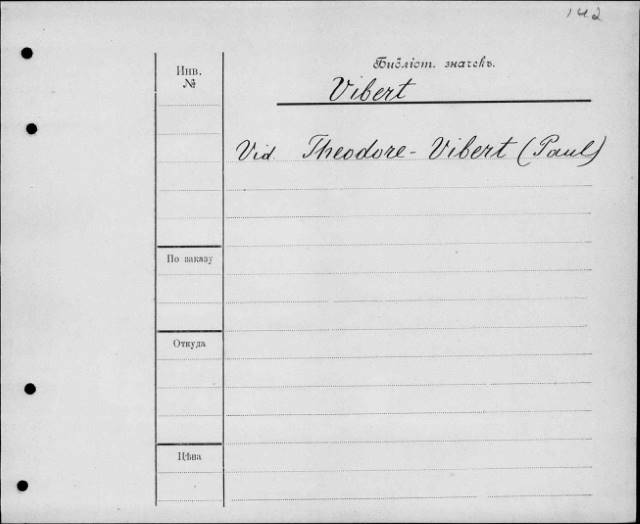 142
Библіот. значекъ.
Инв.
№
Vibert
Vid. Theodore-Vibert (Paul)
По заказу
Откуда
Цѣна